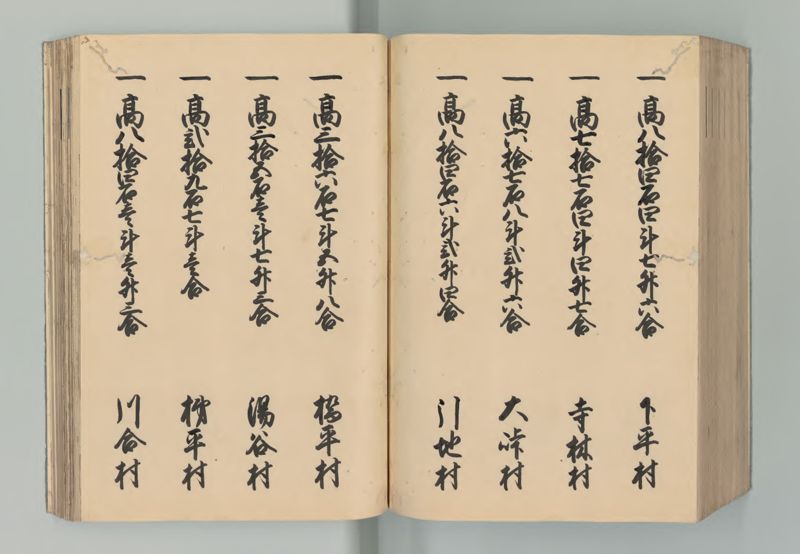 一 高八拾四石四斗七升六合 下平村
一 高七拾七石四斗四升七合 寺林村
一 高六拾七石八斗弐升六合 大峠村
一 高八拾四石六斗弐升四合 引地村
一 高三拾六石七斗五升八合 平村
一 高三拾五石壱斗七升三合 湯谷村
一 高弐拾九石七斗壱合 平村
一 高八拾四石壱斗壱升三合 川合村